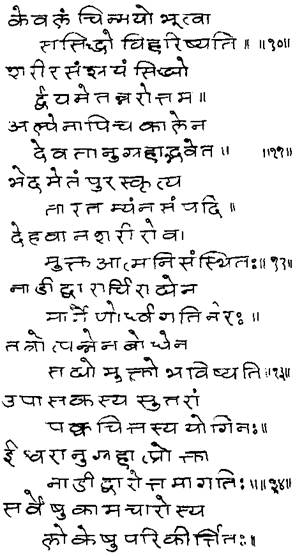 केवलं चिन्मयो भूत्वा
स सिद्धो विहरिष्यति॥ ॥१०॥
शरीरसंश्रयं सिद्धो
र्द्वयमेतन्नरोत्तम॥
अल्पेनापि च कालेन
देवतानुग्रहाद्भवेत॥ ॥११॥
भेदमेतं पुरस्कृत्य
तारतम्यं न संपदि॥
देहवानशरीरो वा
मुक्त आत्मनि संस्थितः॥१२॥
नाडीद्वारार्चिराद्येन
मार्गेणोर्ध्वगतिर्नरः॥
तत्रोत्पन्नेन बोधेन
सद्यो मुक्तो भविष्यति॥१३॥
उपासकस्य सुतरां
पक्वचित्तस्य योगिनः॥
ईश्वरानुग्रहात्प्रोक्ता
नाडीद्वारोत्तमा गतिः॥॥१४॥
सर्वेषु कामचारोस्य
लोकेषु परिकीर्त्तितः॥